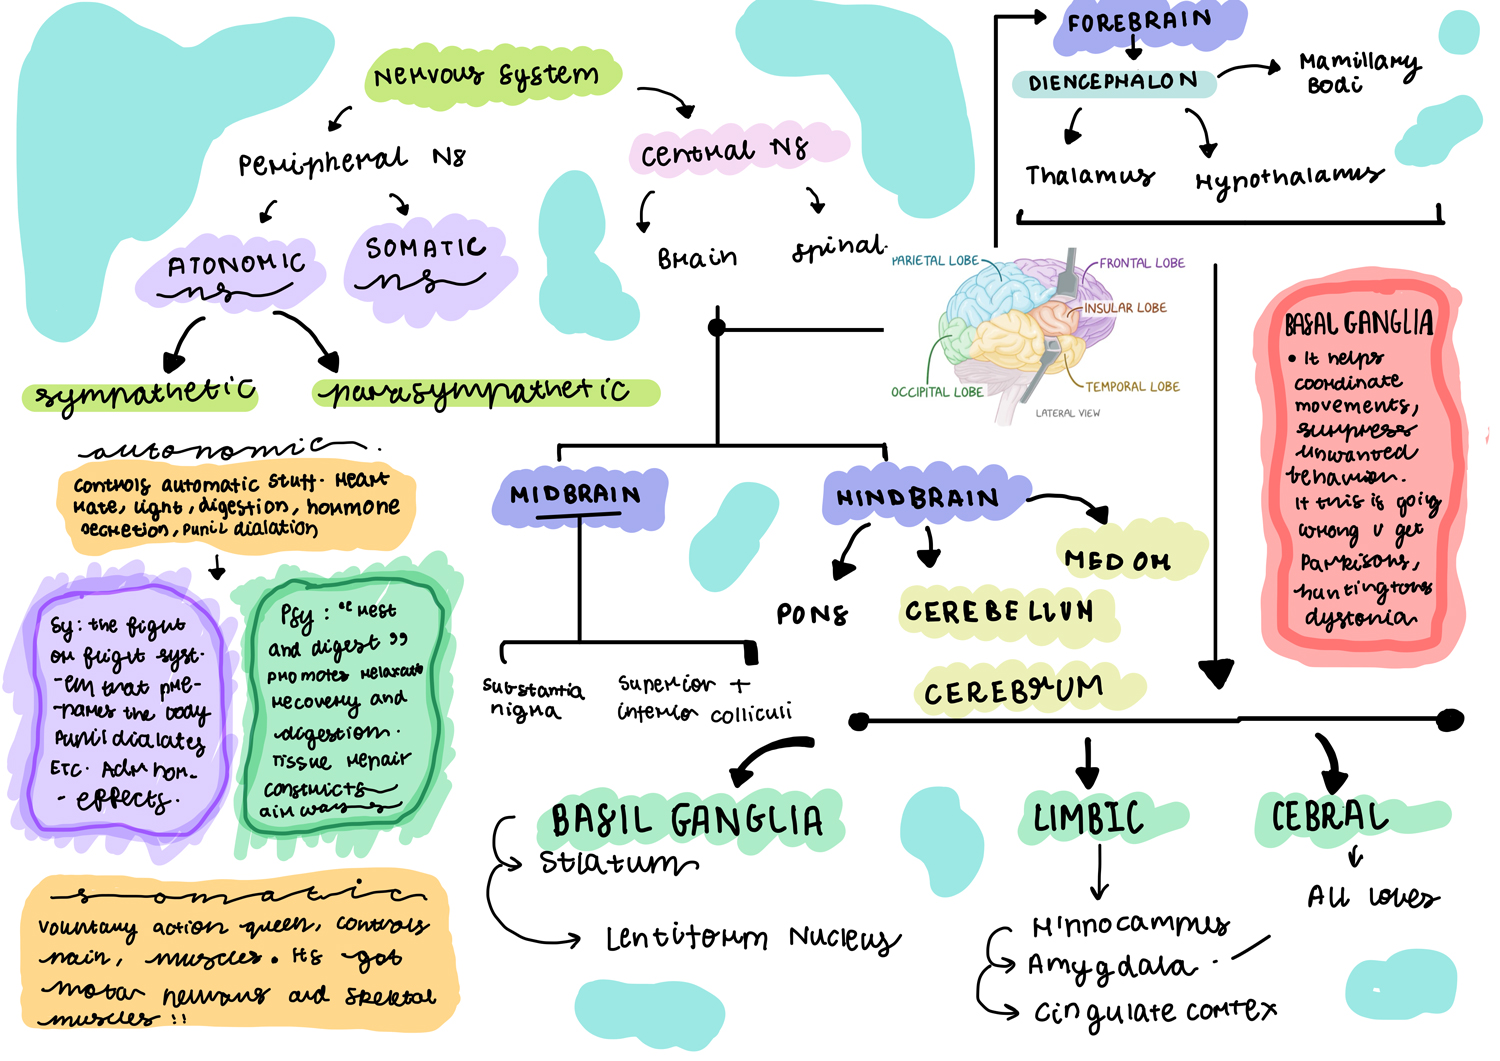 Nervous System
Peripheral NS
Central NS
ATONOMIC
ns
SOMATIC
ns
Brain
Spinal.
sympathetic
parasympathetic
autonomic.
Controls automatic stuff. Heart
rate, light, digestion, hormone
secretion, pupil dialation
Sy: the fight
or flight syst-
-em that pre-
-pares the body
Pupil dialates
ETC.
- effects.
Psy: "rest
and digest"
promotes relaxati
recovery and
digestion.
Tissue repair
constricts
airways
somatic
Voluntary action queen, controls
pain, muscles. its got
motor nervous and skeletal
muscles !!
FOREBRAIN
DIENCEPHALON
Mamillary
Bodi
Thalamus
Hypothalamus
PARIETAL LOBE
FRONTAL LOBE
INSULAR LOBE
OCCIPITAL LOBE
TEMPORAL LOBE
LATERAL VIEW
MIDBRAIN
HINDBRAIN
MEDOM
PONS
CEREBELLUM
CEREBRUM
Substantia
nigra
Superior +
inferior colliculi
BASAL GANGLIA
• It helps
coordinate
movements,
surpress
unwanted
behavior.
If this is going
wrong u get
Parkisons,
huntingtons
dystonia
BASIL GANGLIA
Stiatum
Lentiforum Nucleus
LIMBIC
Hippocampus
Amygdala
Cingulate cortex
CEBRAL
All lobes